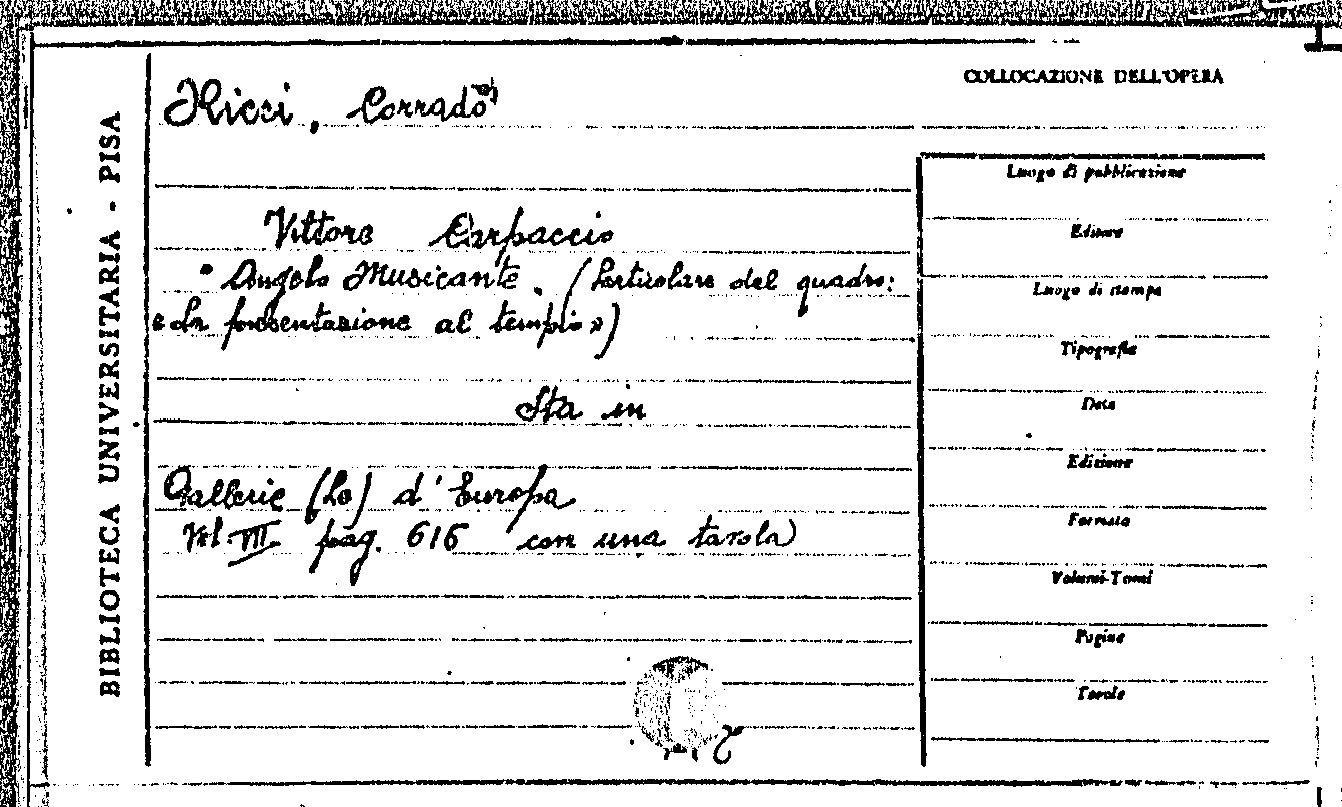 COLLOCAZIONE DELL'OPERA
BIBLIOTECA UNIVERSITARIA - PISA
Ricci, Corrado
Vittore Carpaccio
" Angelo Musicante. (Particolare del quadro:
« La presentazione al tempio »)
Sta in
Gallerie (Le) d'Europa
Vol III pag. 616 con una tavola
Luogo di pubblicazione
Editore
Luogo di stampa
Tipografia
Data
Edizione
Formato
Volumi-Tomi
Pagine
Tavole